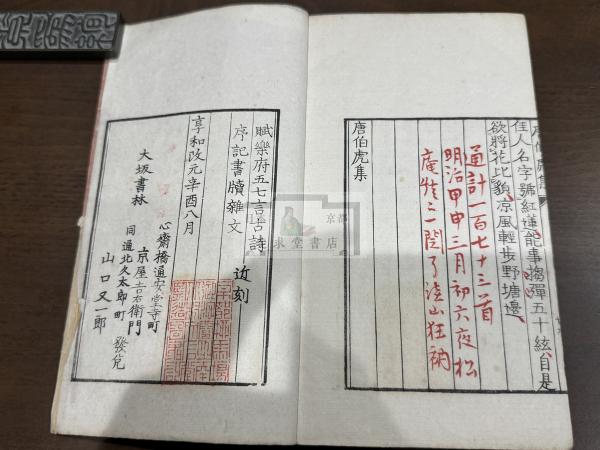 佳人名字號紅蓮能事搊彈五十絃自是
欲將花比貌凉風輕步野塘邊
通計一百七十三首
明治甲申三月初六夜松
唐伯虎集
賦樂府五七言古詩
序記書牘雜文 近刻
享和改元辛酉八月
大坂書林
心齋橋通安堂寺町
京屋吉右衛門
同通北久太郎町
山口又一郎
發兌
京都
求堂書店